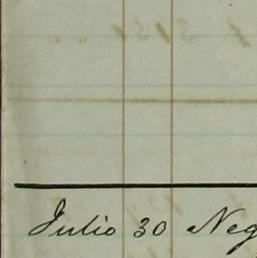 Julio 30 Neg